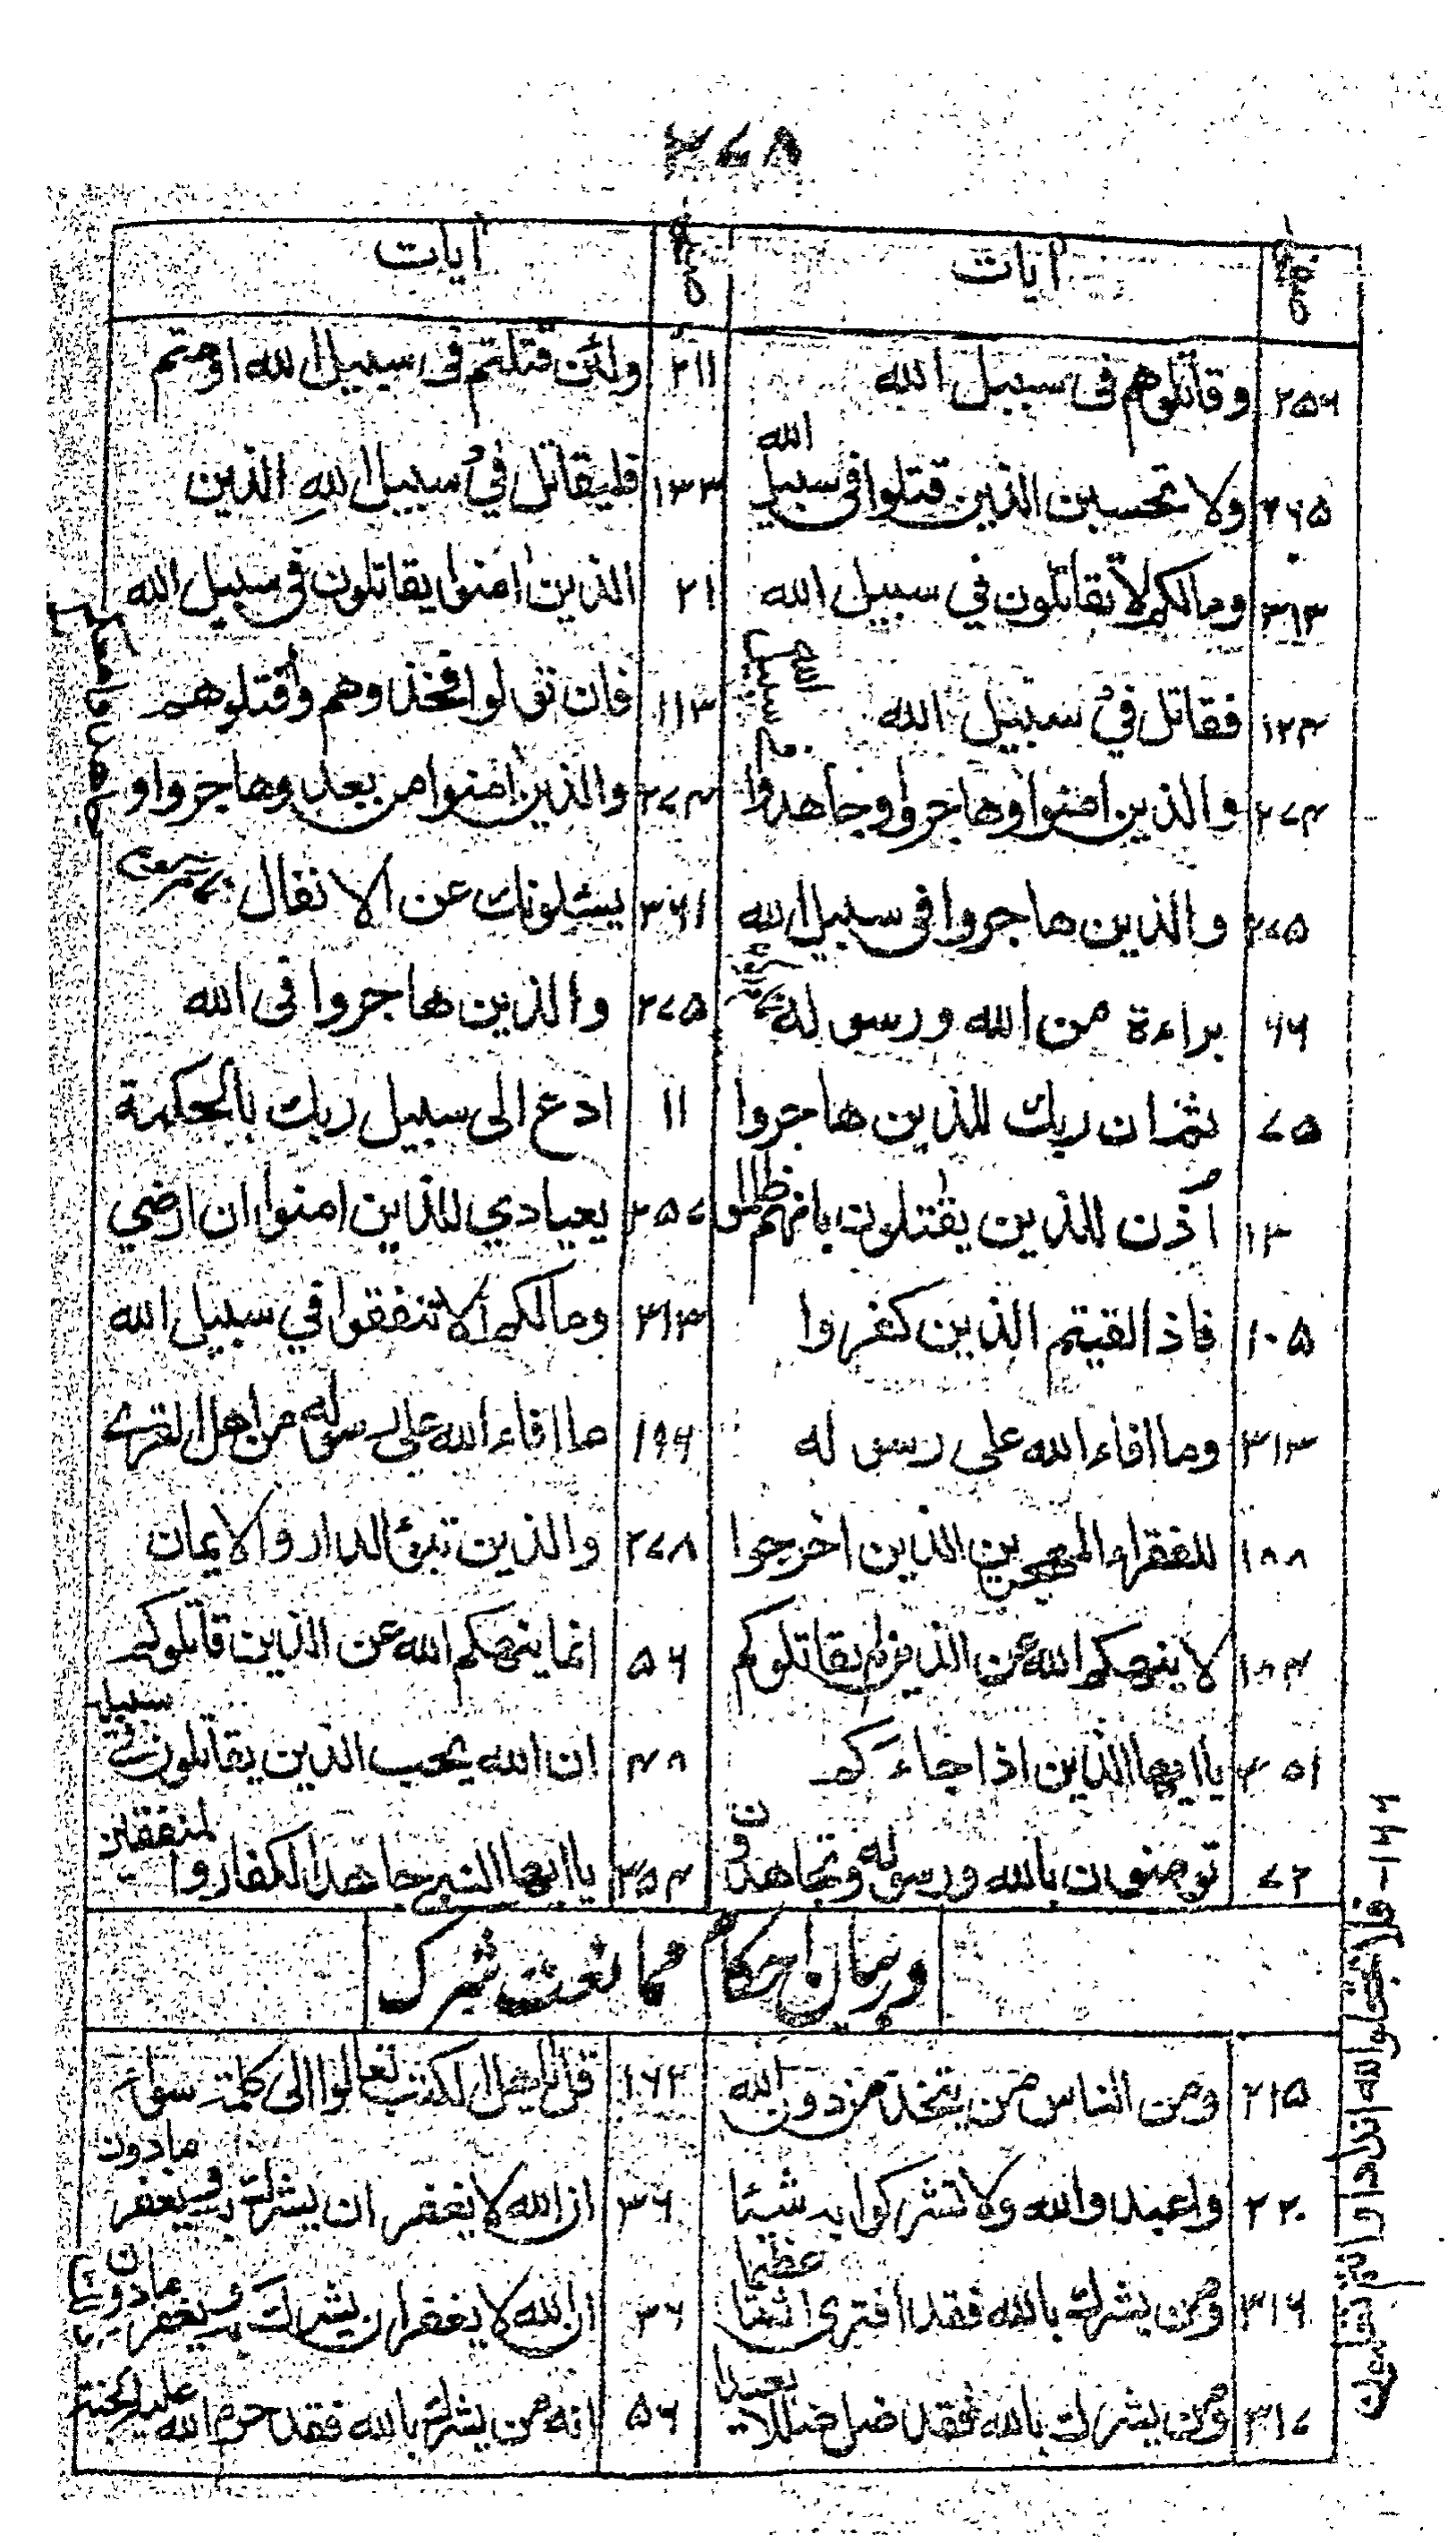 ۳۷۸
صفحہ | آیات | صفحہ | آیات
۲۵۶ | وقاتلوهم فی سبیل الله | ۲۱۱ | ولئن قتلتم فی سبیل الله اومتم
۲۶۵ | ولا تحسبن الذین قتلوا فی سبیل الله | ۱۳۳ | فلیقاتل فی سبیل اللهِ الذین
۳۱۳ | ومالکم لا تقاتلون فی سبیل الله | ۲۱ | الذین امنوا یقاتلون فی سبیل الله
۱۲۴ | فقاتل فی سبیل الله | ۱۱۳ | فان تولوا فخذوهم واقتلوهم
۲۷۴ | والذین امنوا وهاجروا وجاهدوا | ۲۷۴ | والذین امنوا من بعد وهاجروا و
۲۷۵ | والذین هاجروا فی سبیل الله | ۳۶۱ | یسئلونک عن الانفال
۶۶ | براءة من الله ورسوله | ۲۷۵ | والذین هاجروا فی الله
۷۵ | ثم ان ربك للذین هاجروا | ۱۱ | ادع الی سبیل ربك بالحکمة
۱۳ | اُذن للذین یقٰتلون بانهم ظلموا | ۳۵۷ | یعبادي للذین امنوا ان ارضي
۱۰۵ | فاذ القیتم الذین کفروا | ۳۱۳ | ومالکم ألا تنفقوا في سبیل الله
۳۱۳ | وما افاء الله علی رسوله | ۱۹۶ | ما افاء الله علی رسوله من اهل القرے
۱۸۸ | للفقراء المهجرین الذین اخرجوا | ۲۷۸ | والذین تبؤ الدار والایمان
۱۸۴ | لا ینهکم الله عن الذین لم یقاتلوکم | ۵۶ | انما ینهکم الله عن الذین قاتلوکم
۳۵۱ | یا ایها الذین اذا جاءکم | ۴۸ | ان الله یحب الذین یقاتلون فی سبیل
۷۲ | تومنون بالله ورسوله وتجاهدون | ۳۵۴ | یا ایها النبی جاهد الکفار والمنفقین
در بیان احکام ممانعت شرک
۲۱۵ | ومن الناس من یتخذ من دون الله | ۱۶۲ | قل یا هل الکتب تعالوا الی کلمة سواء
۲۲۰ | واعبدوا الله ولا تشرکوا به شیئا | ۳۶ | ان الله لا یغفر ان یشرك به ویغفر مادون
۳۱۶ | ومن یشرك بالله فقد افتری اثما عظیما | ۳۶ | ان الله لا یغفر ان یشرك به ویغفر مادون
۳۱۷ | ومن یشرك بالله فقد ضل ضللا بعیدا | ۵۶ | انه من یشرك بالله فقد حرم الله علیه الجنة
۱۴۶- فلا تجعلوا لله اندادا وانتم تعلمون